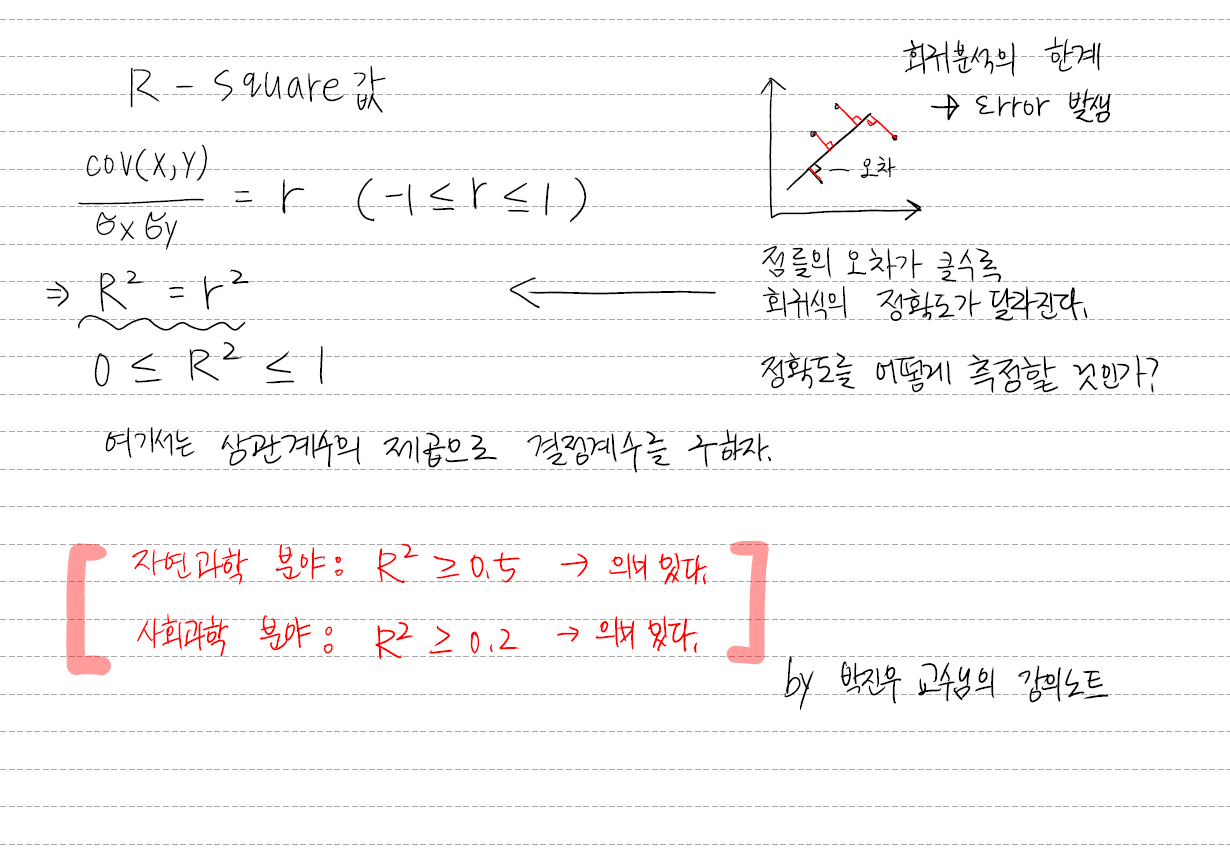 R - square 값
cov(X,Y)
σx σy
= r (-1 ≤ r ≤ 1)
⇒ R² = r²
0 ≤ R² ≤ 1
회귀분석의 한계
→ Error 발생
오차
점들의 오차가 클수록
회귀식의 정확도가 달라진다.
정확도를 어떻게 측정할 것인가?
여기서는 상관계수의 제곱으로 결정계수를 구하자.
자연과학 분야: R² ≥ 0.5 → 의미 있다.
사회과학 분야: R² ≥ 0.2 → 의미 있다.
by 박진우 교수님의 강의노트